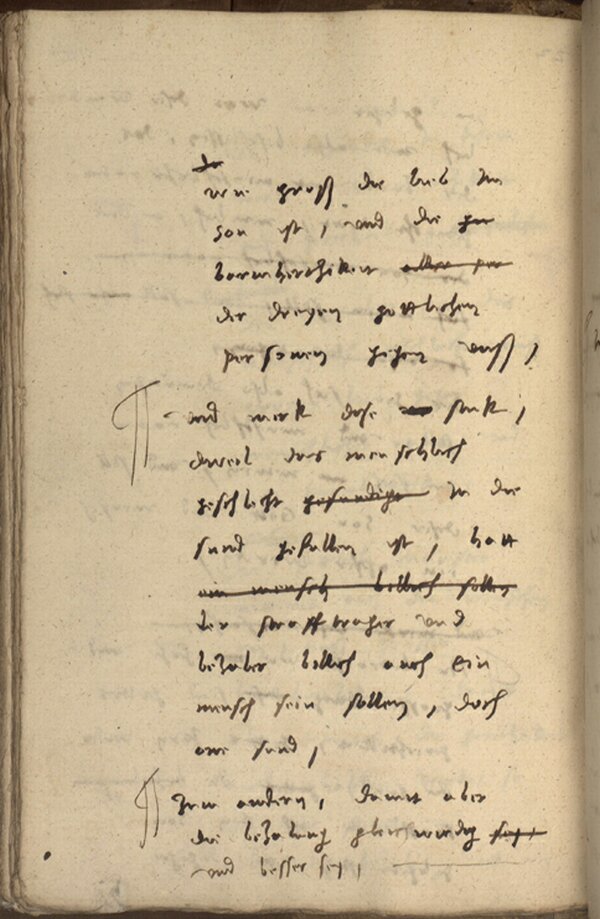 wie gross die lieb im
son ist, und die
barmhertzikeit
der dreyen gottlichen
personen gegen unss,
und merk dise stuk,
dweil das menschlich
geschlecht gesundiget in die
sund gefallen ist, hatt
ein mensch billich sollen
der strafftrager und
bezaler billich auch ein
mensch sein sollen, doch
one sund,
Zum andern, damit aber
die bezalung gleichwirdig sey
und besser sey,